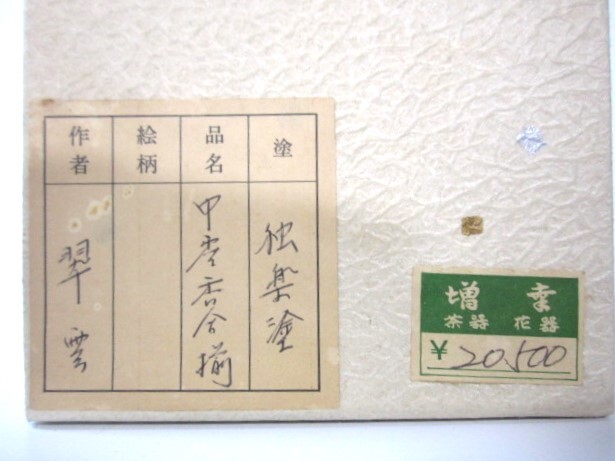 塗
独楽塗
品名
香合揃
絵柄
作者
翠雲
増幸
茶器 花器
¥ 20,500